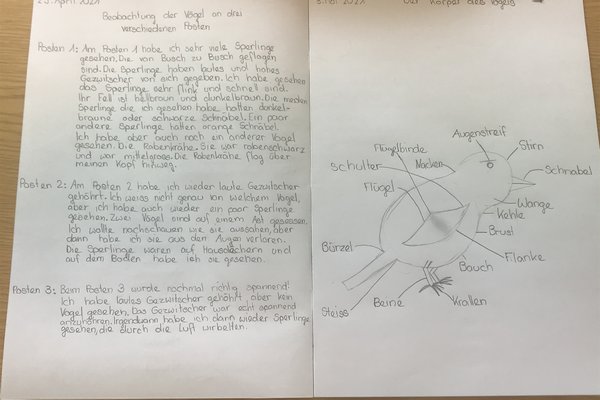 April 2021
Beobachtung der Vögel an drei
verschiedenen Posten
Posten 1: Am Posten 1 habe ich sehr viele Sperlinge
gesehen. Die von Busch zu Busch geflogen
sind. Die Sperlinge haben lautes und hohes
Gezwitscher von sich gegeben. Ich habe gesehen
das Sperlinge sehr flink und schnell sind.
Ihr Fell ist hellbraun und dunkelbraun. Die meisten
Sperlinge die ich gesehen habe hatten dunkel-
braune oder schwarze Schnäbel. Ein paar
andere Sperlinge hatten orange Schnäbel.
Ich habe aber auch noch ein anderer Vogel
gesehen. Die Rabenkrähe. Sie war rabenschwarz
und war mittelgross. Die Rabenkrähe flog über
meinen Kopf hinweg.
Posten 2: Am Posten 2 habe ich wieder laute Gezwitscher
gehöhrt. Ich weiss nicht genau von welchem Vogel,
aber ich habe auch wieder ein paar Sperlinge
gesehen. Zwei Vögel sind auf einem Ast gesessen.
Ich wollte nachschauen wie sie aussehen, aber
dann habe ich sie aus den Augen verloren.
Die Sperlinge waren auf Hausdächern und
auf dem Boden habe ich sie gesehen.
Posten 3: Beim Posten 3 wurde nochmal richtig spannend!
Ich habe lautes Gezwitscher gehöhrt, aber kein
Vogel gesehen. Das Gezwitscher war echt spannend
anzuhören. Irgendwann habe ich dann wieder Sperlinge
gesehen, die durch die Luft wirbelten.
Der Körper des Vogels
Augenstreif
Flügelbinde
Stirn
Schulter
Nacken
Schnabel
Flügel
Wange
Kehle
Brust
Bürzel
Flanke
Bauch
Steiss
Beine
Krallen